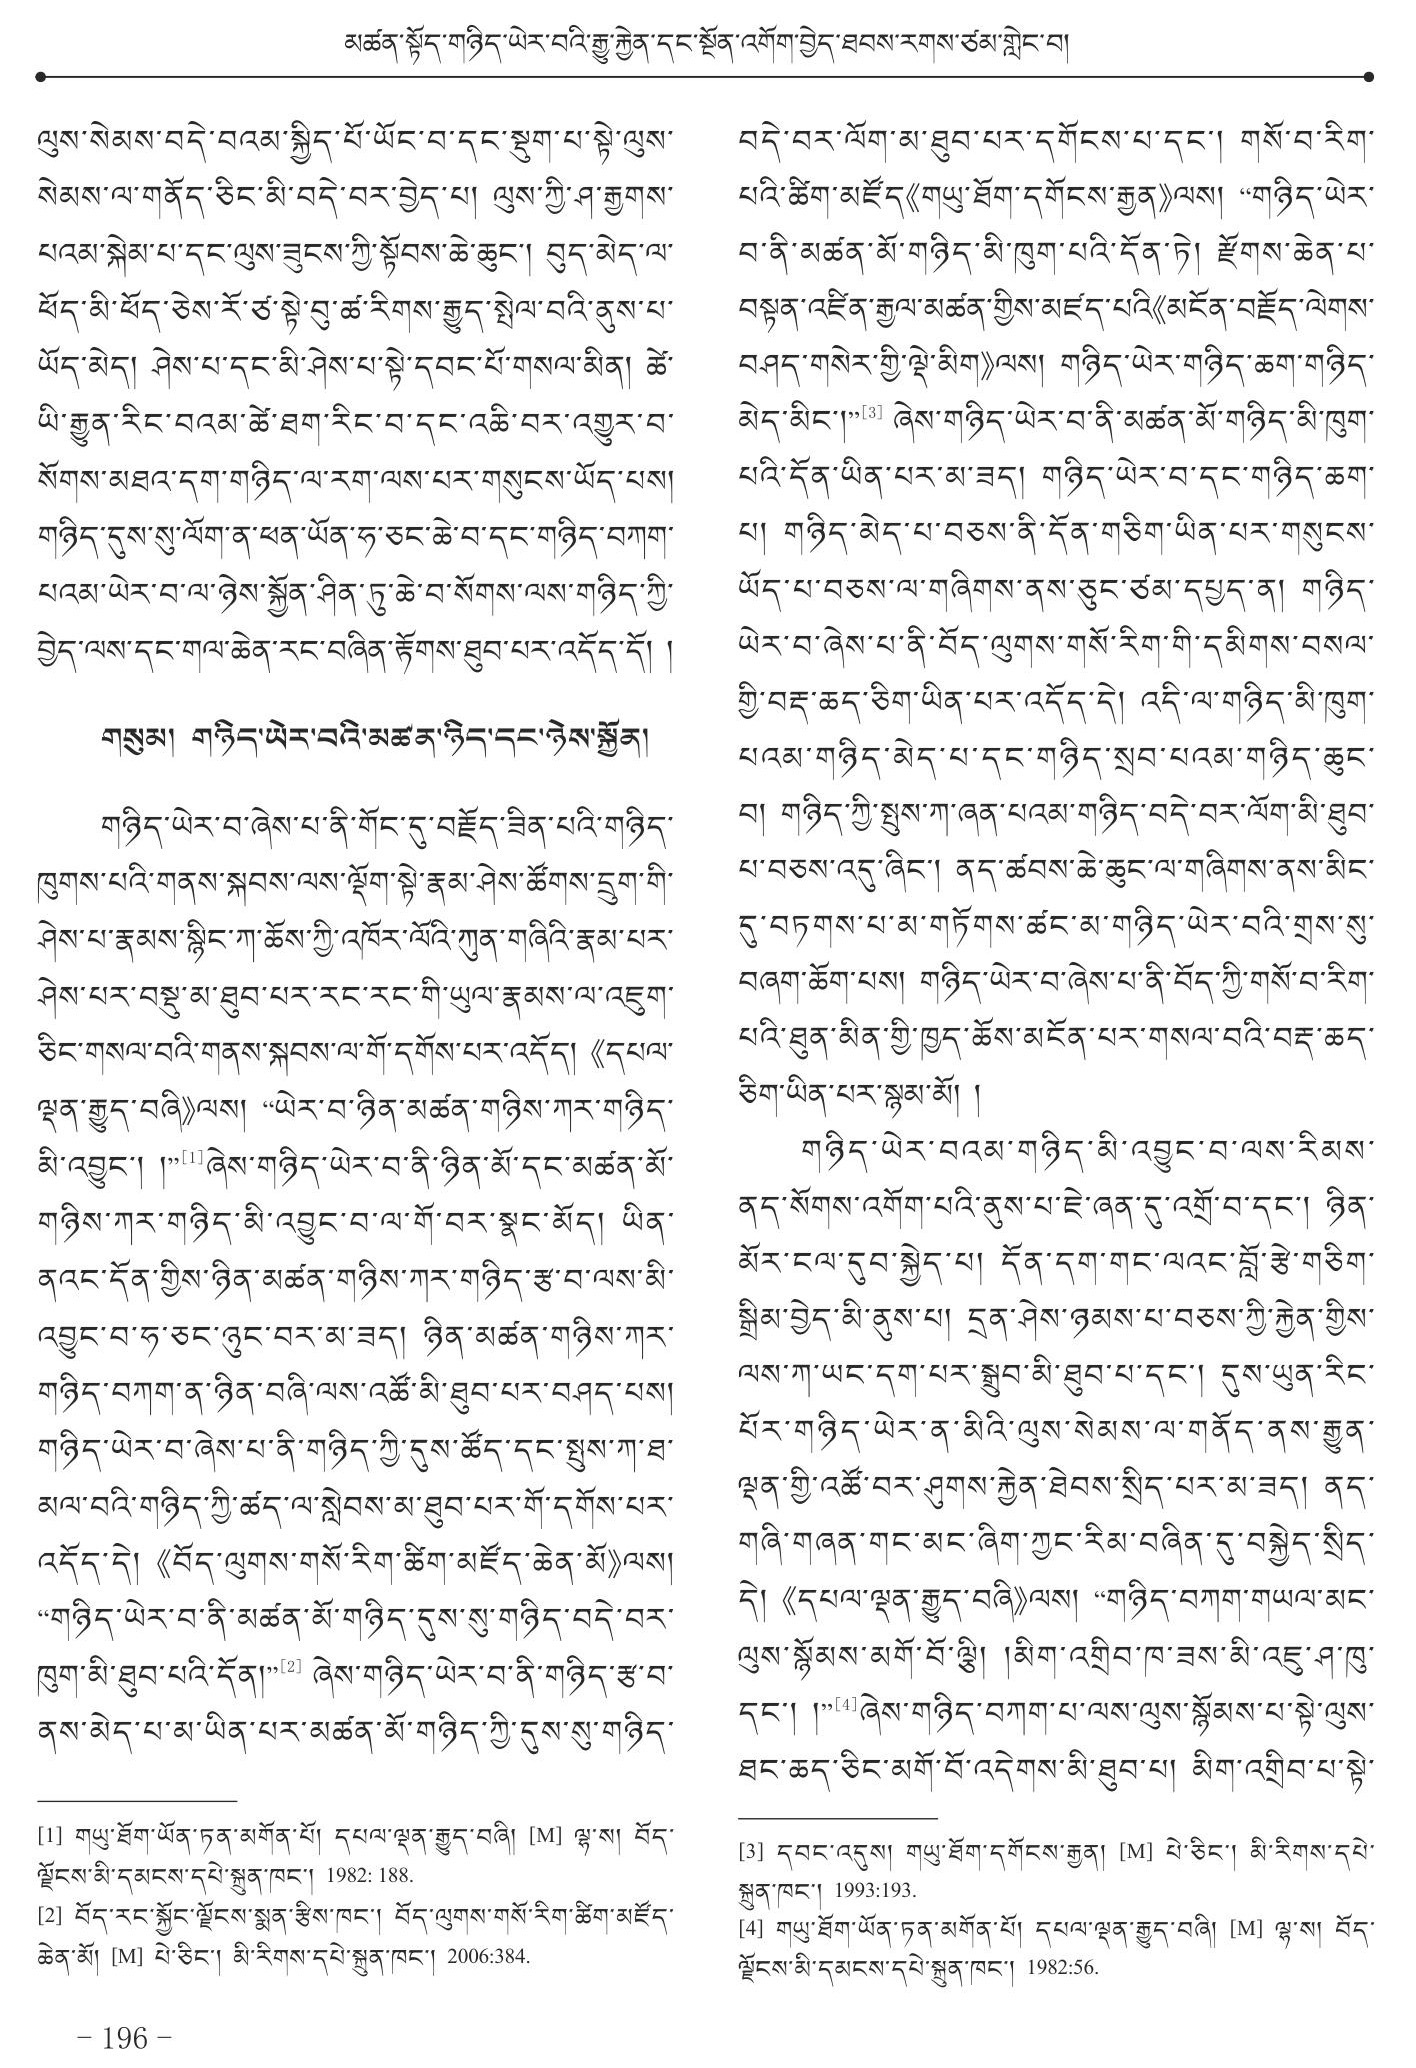 མཚན་སྟོད་གཉིད་ཡེར་བའི་རྒྱུ་རྐྱེན་དང་སྔོན་འགོག་བྱེད་ཐབས་རགས་ཙམ་གླེང་བ།
ལུས་སེམས་བདེ་བའམ་སྐྱིད་པོ་ཡོང་བ་དང་སྡུག་པ་སྟེ་ལུས་
སེམས་ལ་གནོད་ཅིང་མི་བདེ་བར་བྱེད་པ། ལུས་ཀྱི་ཤ་རྒྱགས་
པའམ་སྐེམ་པ་དང་ལུས་ཟུངས་ཀྱི་སྟོབས་ཆེ་ཆུང་། བུད་མེད་ལ་
ཕོད་མི་ཕོད་ཅེས་རོ་ཙ་སྟེ་བུ་ཚ་རིགས་རྒྱུད་སྤེལ་བའི་ནུས་པ་
ཡོད་མེད། ཤེས་པ་དང་མི་ཤེས་པ་སྟེ་དབང་པོ་གསལ་མིན། ཚེ་
ཡི་རྒྱུན་རིང་བའམ་ཚེ་ཐག་རིང་བ་དང་འཆི་བར་འགྱུར་བ་
སོགས་མཐའ་དག་གཉིད་ལ་རག་ལས་པར་གསུངས་ཡོད་པས།
གཉིད་དུས་སུ་ལོག་ན་ཕན་ཡོན་ཧ་ཅང་ཆེ་བ་དང་གཉིད་བཀག་
པའམ་ཡེར་བ་ལ་ཉེས་སྐྱོན་ཤིན་ཏུ་ཆེ་བ་སོགས་ལས་གཉིད་ཀྱི་
བྱེད་ལས་དང་གལ་ཆེན་རང་བཞིན་རྟོགས་ཐུབ་པར་འདོད་དོ། །
གསུམ། གཉིད་ཡེར་བའི་མཚན་ཉིད་དང་ཉེས་སྐྱོན།
གཉིད་ཡེར་བ་ཞེས་པ་ནི་གོང་དུ་བརྗོད་ཟིན་པའི་གཉིད་
ཁུགས་པའི་གནས་སྐབས་ལས་ལྡོག་སྟེ་རྣམ་ཤེས་ཚོགས་དྲུག་གི་
ཤེས་པ་རྣམས་སྙིང་ཀ་ཆོས་ཀྱི་འཁོར་ལོའི་ཀུན་གཞིའི་རྣམ་པར་
ཤེས་པར་བསྡུ་མ་ཐུབ་པར་རང་རང་གི་ཡུལ་རྣམས་ལ་འཇུག་
ཅིང་གསལ་བའི་གནས་སྐབས་ལ་གོ་དགོས་པར་འདོད། 《དཔལ་
ལྡན་རྒྱུད་བཞི》ལས། “ཡེར་བ་ཉིན་མཚན་གཉིས་ཀར་གཉིད་
མི་འབྱུང་། །”[1]ཞེས་གཉིད་ཡེར་བ་ནི་ཉིན་མོ་དང་མཚན་མོ་
གཉིས་ཀར་གཉིད་མི་འབྱུང་བ་ལ་གོ་བར་སྣང་མོད། ཡིན་
ནའང་དོན་གྱིས་ཉིན་མཚན་གཉིས་ཀར་གཉིད་རྩ་བ་ལས་མི་
འབྱུང་བ་ཧ་ཅང་ཉུང་བར་མ་ཟད། ཉིན་མཚན་གཉིས་ཀར་
གཉིད་བཀག་ན་ཉིན་བཞི་ལས་འཚོ་མི་ཐུབ་པར་བཤད་པས།
གཉིད་ཡེར་བ་ཞེས་པ་ནི་གཉིད་ཀྱི་དུས་ཚོད་དང་སྤུས་ཀ་ཐ་
མལ་བའི་གཉིད་ཀྱི་ཚད་ལ་སླེབས་མ་ཐུབ་པར་གོ་དགོས་པར་
འདོད་དེ། 《བོད་ལུགས་གསོ་རིག་ཚིག་མཛོད་ཆེན་མོ》ལས།
“གཉིད་ཡེར་བ་ནི་མཚན་མོ་གཉིད་དུས་སུ་གཉིད་བདེ་བར་
ཁུག་མི་ཐུབ་པའི་དོན།”[2] ཞེས་གཉིད་ཡེར་བ་ནི་གཉིད་རྩ་བ་
ནས་མེད་པ་མ་ཡིན་པར་མཚན་མོ་གཉིད་ཀྱི་དུས་སུ་གཉིད་
[1] གཡུ་ཐོག་ཡོན་ཏན་མགོན་པོ། དཔལ་ལྡན་རྒྱུད་བཞི། [M] ལྷ་ས། བོད་
ལྗོངས་མི་དམངས་དཔེ་སྐྲུན་ཁང་། 1982: 188.
[2] བོད་རང་སྐྱོང་ལྗོངས་སྨན་རྩིས་ཁང་། བོད་ལུགས་གསོ་རིག་ཚིག་མཛོད་
ཆེན་མོ། [M] པེ་ཅིང་། མི་རིགས་དཔེ་སྐྲུན་ཁང་། 2006:384.
བདེ་བར་ལོག་མ་ཐུབ་པར་དགོངས་པ་དང་། གསོ་བ་རིག་
པའི་ཚིག་མཛོད《གཡུ་ཐོག་དགོངས་རྒྱན》ལས། “གཉིད་ཡེར་
བ་ནི་མཚན་མོ་གཉིད་མི་ཁུག་པའི་དོན་ཏེ། རྫོགས་ཆེན་པ་
བསྟན་འཛིན་རྒྱལ་མཚན་གྱིས་མཛད་པའི《མངོན་བརྗོད་ལེགས་
བཤད་གསེར་གྱི་ལྡེ་མིག》ལས། གཉིད་ཡེར་གཉིད་ཆག་གཉིད་
མེད་མིང་།”[3] ཞེས་གཉིད་ཡེར་བ་ནི་མཚན་མོ་གཉིད་མི་ཁུག་
པའི་དོན་ཡིན་པར་མ་ཟད། གཉིད་ཡེར་བ་དང་གཉིད་ཆག་
པ། གཉིད་མེད་པ་བཅས་ནི་དོན་གཅིག་ཡིན་པར་གསུངས་
ཡོད་པ་བཅས་ལ་གཞིགས་ནས་ཅུང་ཙམ་དཔྱད་ན། གཉིད་
ཡེར་བ་ཞེས་པ་ནི་བོད་ལུགས་གསོ་རིག་གི་དམིགས་བསལ་
གྱི་བརྡ་ཆད་ཅིག་ཡིན་པར་འདོད་དེ། འདི་ལ་གཉིད་མི་ཁུག་
པའམ་གཉིད་མེད་པ་དང་གཉིད་སྲབ་པའམ་གཉིད་ཆུང་
བ། གཉིད་ཀྱི་སྤུས་ཀ་ཞན་པའམ་གཉིད་བདེ་བར་ལོག་མི་ཐུབ་
པ་བཅས་འདུ་ཞིང་། ནད་ཚབས་ཆེ་ཆུང་ལ་གཞིགས་ནས་མིང་
དུ་བཏགས་པ་མ་གཏོགས་ཚང་མ་གཉིད་ཡེར་བའི་གྲས་སུ་
བཞག་ཆོག་པས། གཉིད་ཡེར་བ་ཞེས་པ་ནི་བོད་ཀྱི་གསོ་བ་རིག་
པའི་ཐུན་མིན་གྱི་ཁྱད་ཆོས་མངོན་པར་གསལ་བའི་བརྡ་ཆད་
ཅིག་ཡིན་པར་སྙམ་མོ། །
གཉིད་ཡེར་བའམ་གཉིད་མི་འབྱུང་བ་ལས་རིམས་
ནད་སོགས་འགོག་པའི་ནུས་པ་ཇེ་ཞན་དུ་འགྲོ་བ་དང་། ཉིན་
མོར་ངལ་དུབ་སྐྱེད་པ། དོན་དག་གང་ལའང་བློ་རྩེ་གཅིག་
སྒྲིམ་བྱེད་མི་ནུས་པ། དྲན་ཤེས་ཉམས་པ་བཅས་ཀྱི་རྐྱེན་གྱིས་
ལས་ཀ་ཡང་དག་པར་སྒྲུབ་མི་ཐུབ་པ་དང་། དུས་ཡུན་རིང་
པོར་གཉིད་ཡེར་ན་མིའི་ལུས་སེམས་ལ་གནོད་ནས་རྒྱུན་
ལྡན་གྱི་འཚོ་བར་ཤུགས་རྐྱེན་ཐེབས་སྲིད་པར་མ་ཟད། ནད་
གཞི་གཞན་གང་མང་ཞིག་ཀྱང་རིམ་བཞིན་དུ་བསྐྱེད་སྲིད་
དེ། 《དཔལ་ལྡན་རྒྱུད་བཞི》ལས། “གཉིད་བཀག་གཡལ་མང་
ལུས་སྙོམས་མགོ་བོ་ལྕི། །མིག་འགྲིབ་ཁ་ཟས་མི་འཇུ་ཤ་ཁུ་
དང་། །”[4]ཞེས་གཉིད་བཀག་པ་ལས་ལུས་སྙོམས་པ་སྟེ་ལུས་
ཐང་ཆད་ཅིང་མགོ་བོ་འདེགས་མི་ཐུབ་པ། མིག་འགྲིབ་པ་སྟེ་
[3] དབང་འདུས། གཡུ་ཐོག་དགོངས་རྒྱན། [M] པེ་ཅིང་། མི་རིགས་དཔེ་
སྐྲུན་ཁང་། 1993:193.
[4] གཡུ་ཐོག་ཡོན་ཏན་མགོན་པོ། དཔལ་ལྡན་རྒྱུད་བཞི། [M] ལྷ་ས། བོད་
ལྗོངས་མི་དམངས་དཔེ་སྐྲུན་ཁང་། 1982:56.
– 196 –